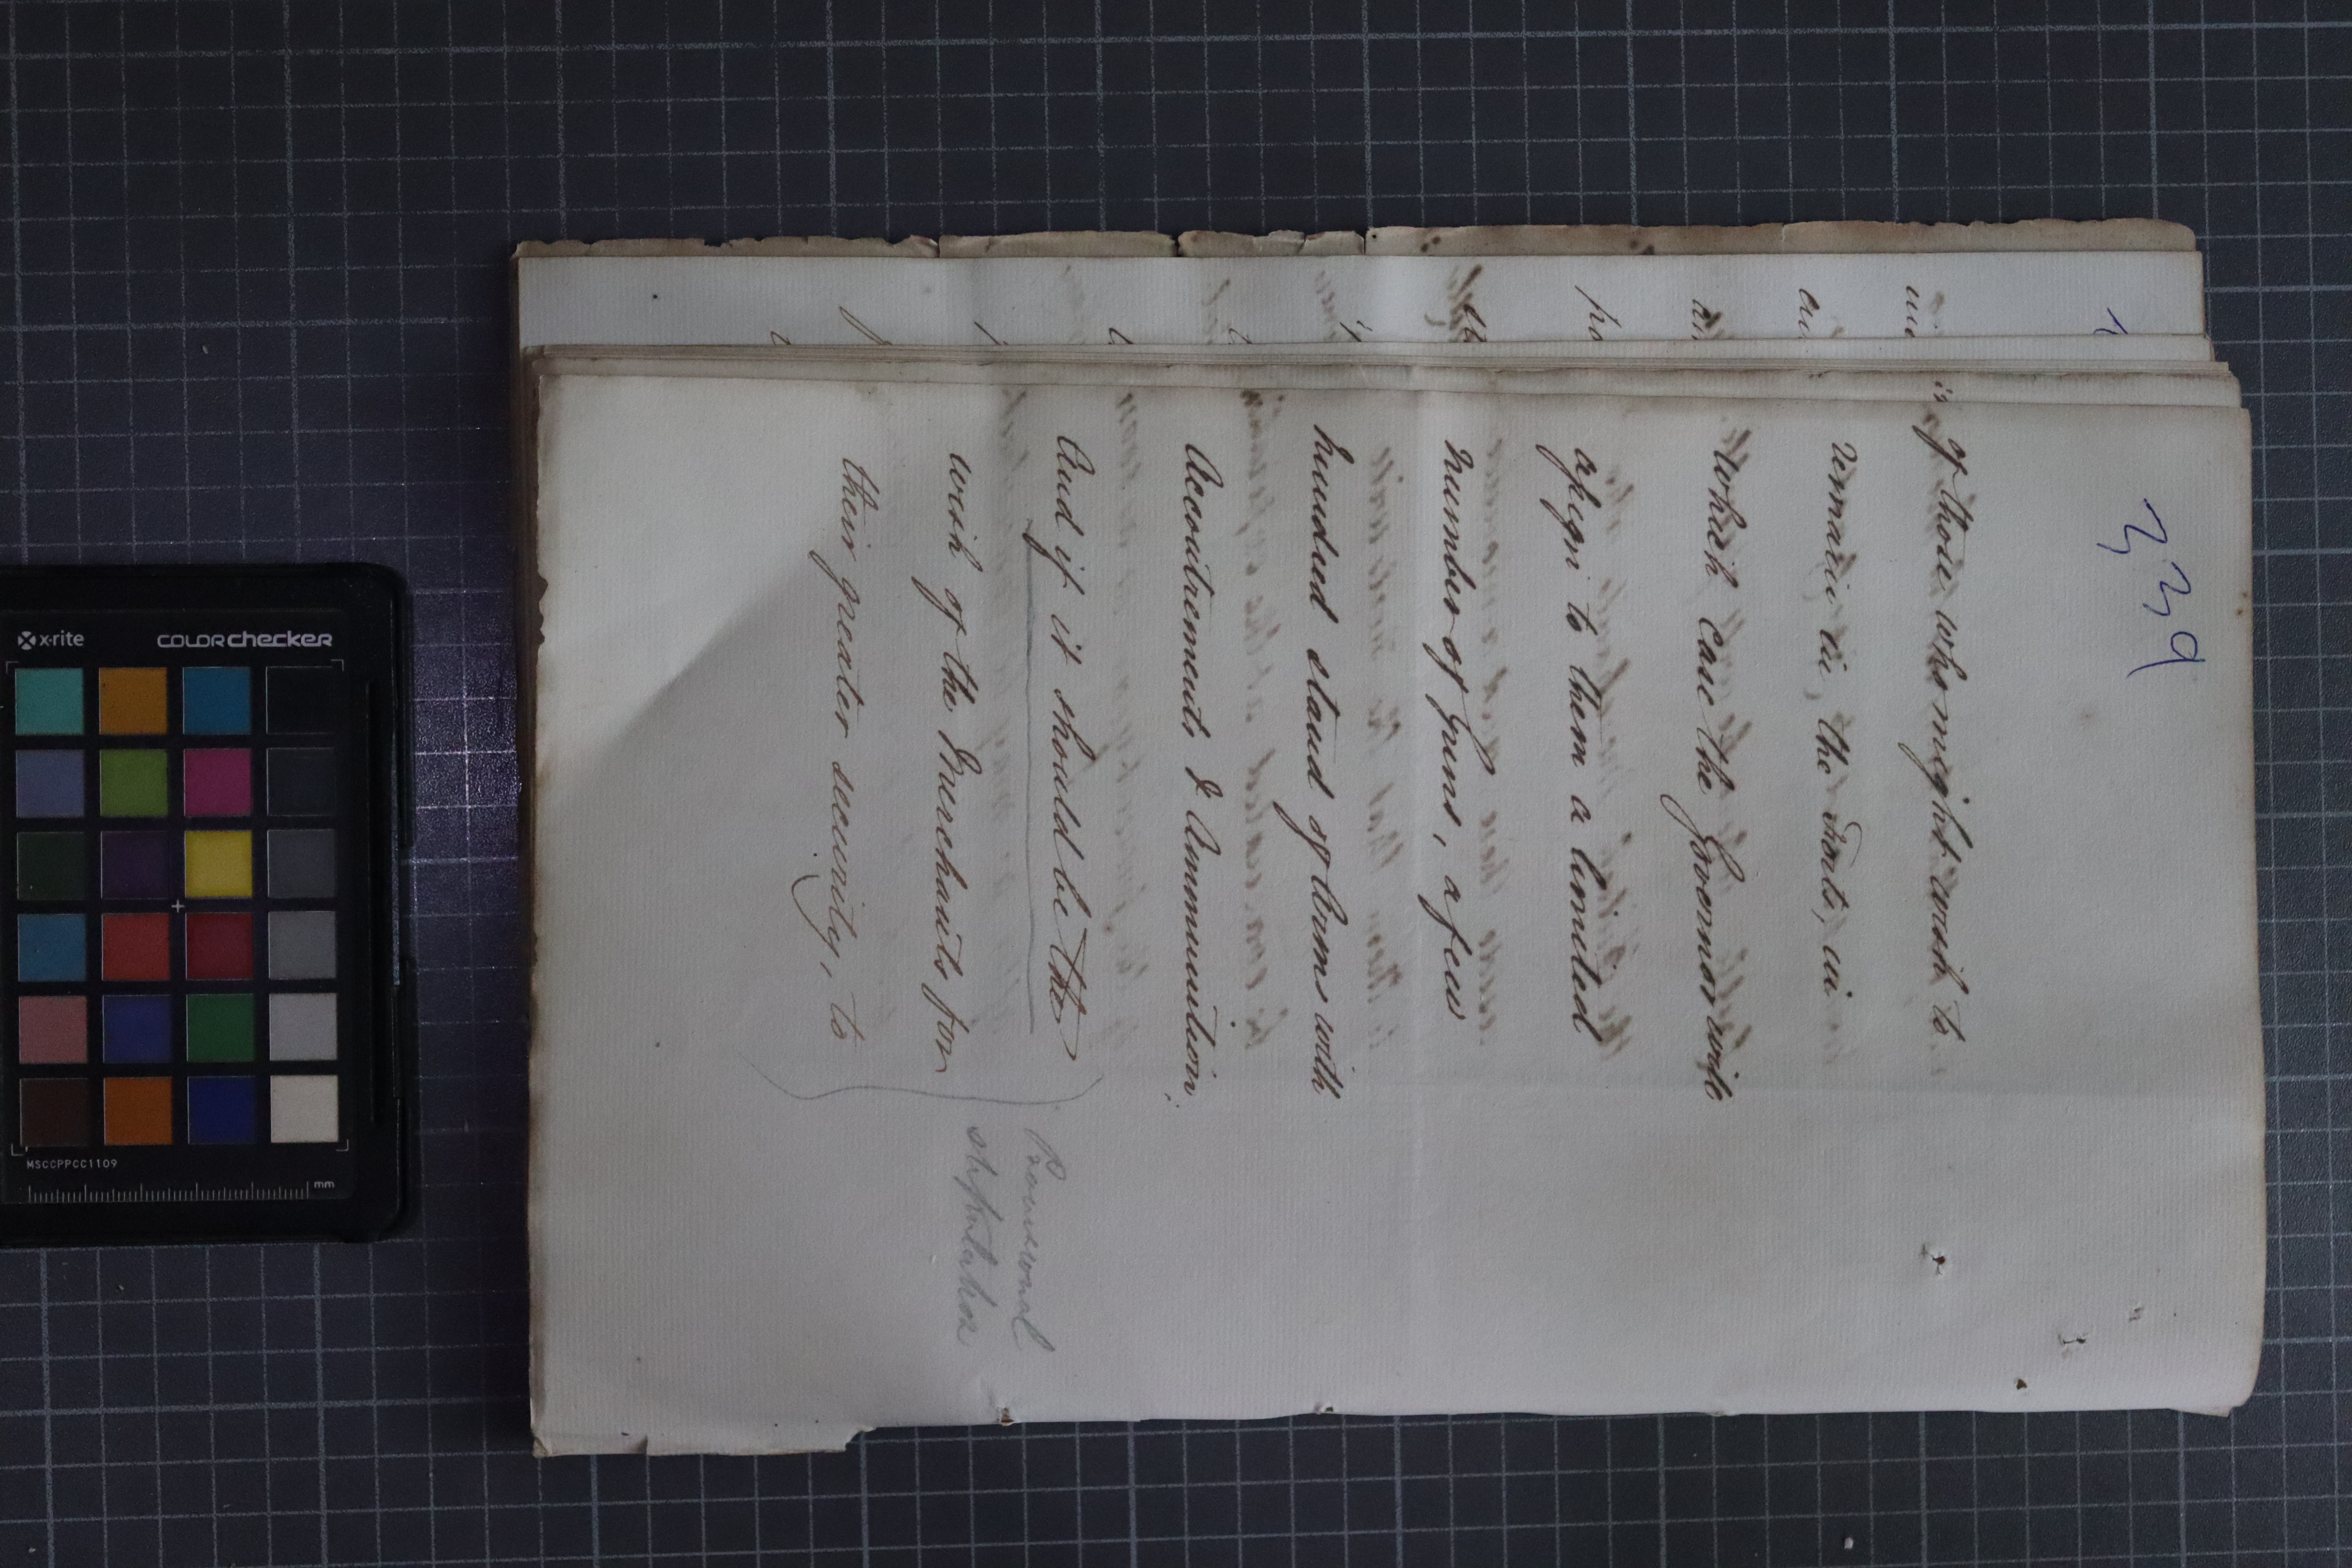 339
of those who might wish to
remain in, the Forts, in
which case the Governor will
assign to them a limited
number of Guns, a few
hundred stand of Arms with
Accoutrements & Ammunition.
And if it should be the
wish of the Merchants for
their greater security, to
Provisional
stipulation
x·rite
colorchecker
MSCCPPCC1109
mm